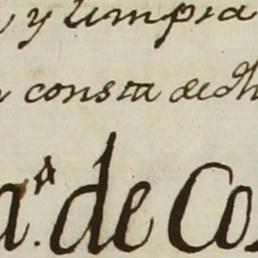 y limpia
consta de
a.ª de Co